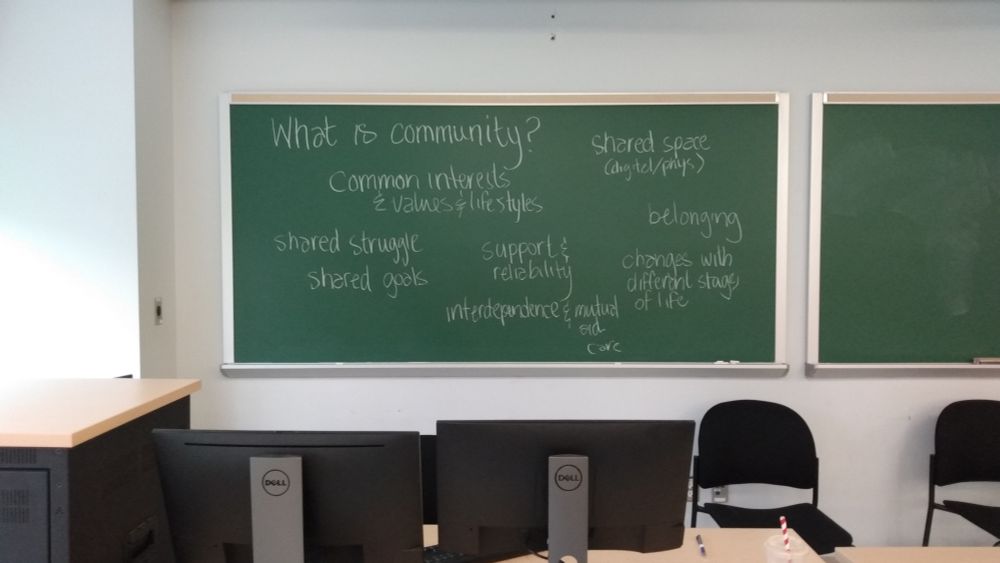 What is community?
shared space
(digital/phys)
Common interests
& values & lifestyles
belonging
shared struggle
shared goals
support &
reliability
changes with
different stages
of life
interdependence & mutual
aid
care
DELL
DELL